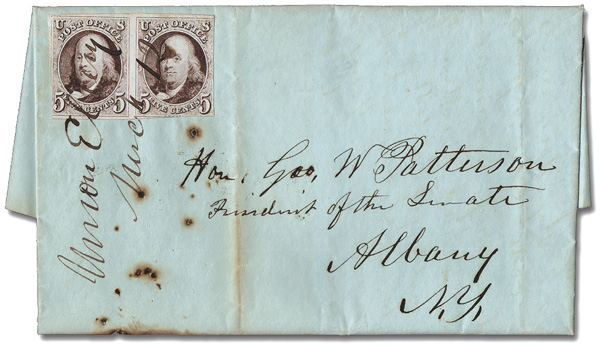 U S
POST OFFICE
5 FIVE CENTS 5
U S
POST OFFICE
5 FIVE CENTS 5
Union
Hon. Geo, W Patterson
President of the Senate
Albany
N.Y.